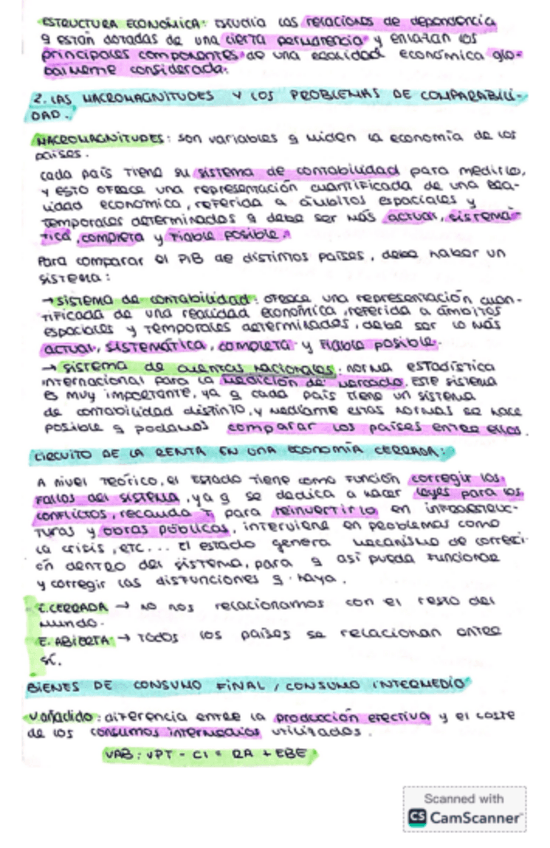 ESTRUCTURA ECONÓMICA: Estudia las relaciones de dependencia
q están dotadas de una cierta permanencia y enlazan los
principales componentes de una realidad económica glo-
balmente considerada.
2. LAS MACROMAGNITUDES Y LOS PROBLEMAS DE COMPARABILI-
DAD.
MACROMAGNITUDES: son variables q miden la economía de los
países.
cada país tiene su sistema de contabilidad para medirlo,
y esto ofrece una representación cuantificada de una rea-
lidad económica, referida a ámbitos espaciales y
temporales determinados q debe ser más actual, sistemá-
tica, completa y fiable posible.
Para comparar el PIB de distintos países, debe haber un
sistema:
→ sistema de contabilidad: ofrece una representación cuan-
tificada de una realidad económica, referida a ámbitos
espaciales y temporales determinados, debe ser lo más
actual, sistemática, completa y fiable posible.
→ sistema de cuentas nacionales: norma estadística
internacional para la medición de mercado. Este sistema
es muy importante, ya q cada país tiene un sistema
de contabilidad distinto, y mediante estas normas se hace
posible q podamos comparar los países entre ellos.
CIRCUITO DE LA RENTA EN UNA ECONOMÍA CERRADA:
A nivel teórico, el Estado tiene como función corregir los
fallos del sistema, ya q se dedica a hacer leyes para los
conflictos, recauda T para reinvertirlo en infraestruc-
turas y obras públicas, interviene en problemas como
la crisis, etc... El estado genera mecanismo de correci-
ón dentro del sistema, para q así pueda funcionar
y corregir las disfunciones q haya.
E. CERRADA → No nos relacionamos con el resto del
mundo.
E. ABIERTA → Todos los países se relacionan entre
sí.
BIENES DE CONSUMO FINAL / CONSUMO INTERMEDIO
V. añadido: diferencia entre la producción efectiva y el coste
de los consumos intermedios utilizados.
VAB: VPT - CI = RA + EBE
Scanned with
CS CamScanner